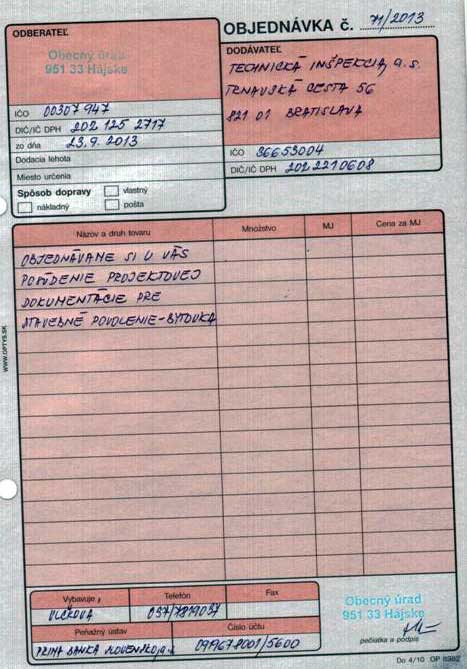 OBJEDNÁVKA č. 71/2013
ODBERATEĽ
Obecný úrad
951 33 Hájske
IČO 00307 947
DIČ/IČ DPH 202 125 2717
zo dňa 23.9. 2013
Dodacia lehota
Miesto určenia
Spôsob dopravy
vlastný
nákladný
pošta
DODÁVATEĽ
TECHNICKÁ INŠPEKCIA, a.s.
TRNAVSKÁ CESTA 56
821 01 BRATISLAVA
IČO 36653004
DIČ/IČ DPH 202 221 0608
Názov a druh tovaru
Množstvo
MJ
Cena za MJ
OBJEDNÁVAME SI U VÁS
POSÚDENIE PROJEKTOVEJ
DOKUMENTÁCIE PRE
STAVEBNÉ POVOLENIE-BYTOVKA
WWW.OPTYS.SK
Vybavuje
Telefón
Fax
VLČKOVÁ
037/7819037
Peňažný ústav
Číslo účtu
PRIMA BANKA SLOVENSKO, a.s.
0919678001/5600
Obecný úrad
951 33 Hájske
pečiatka a podpis
Do 4/10 OP 8982